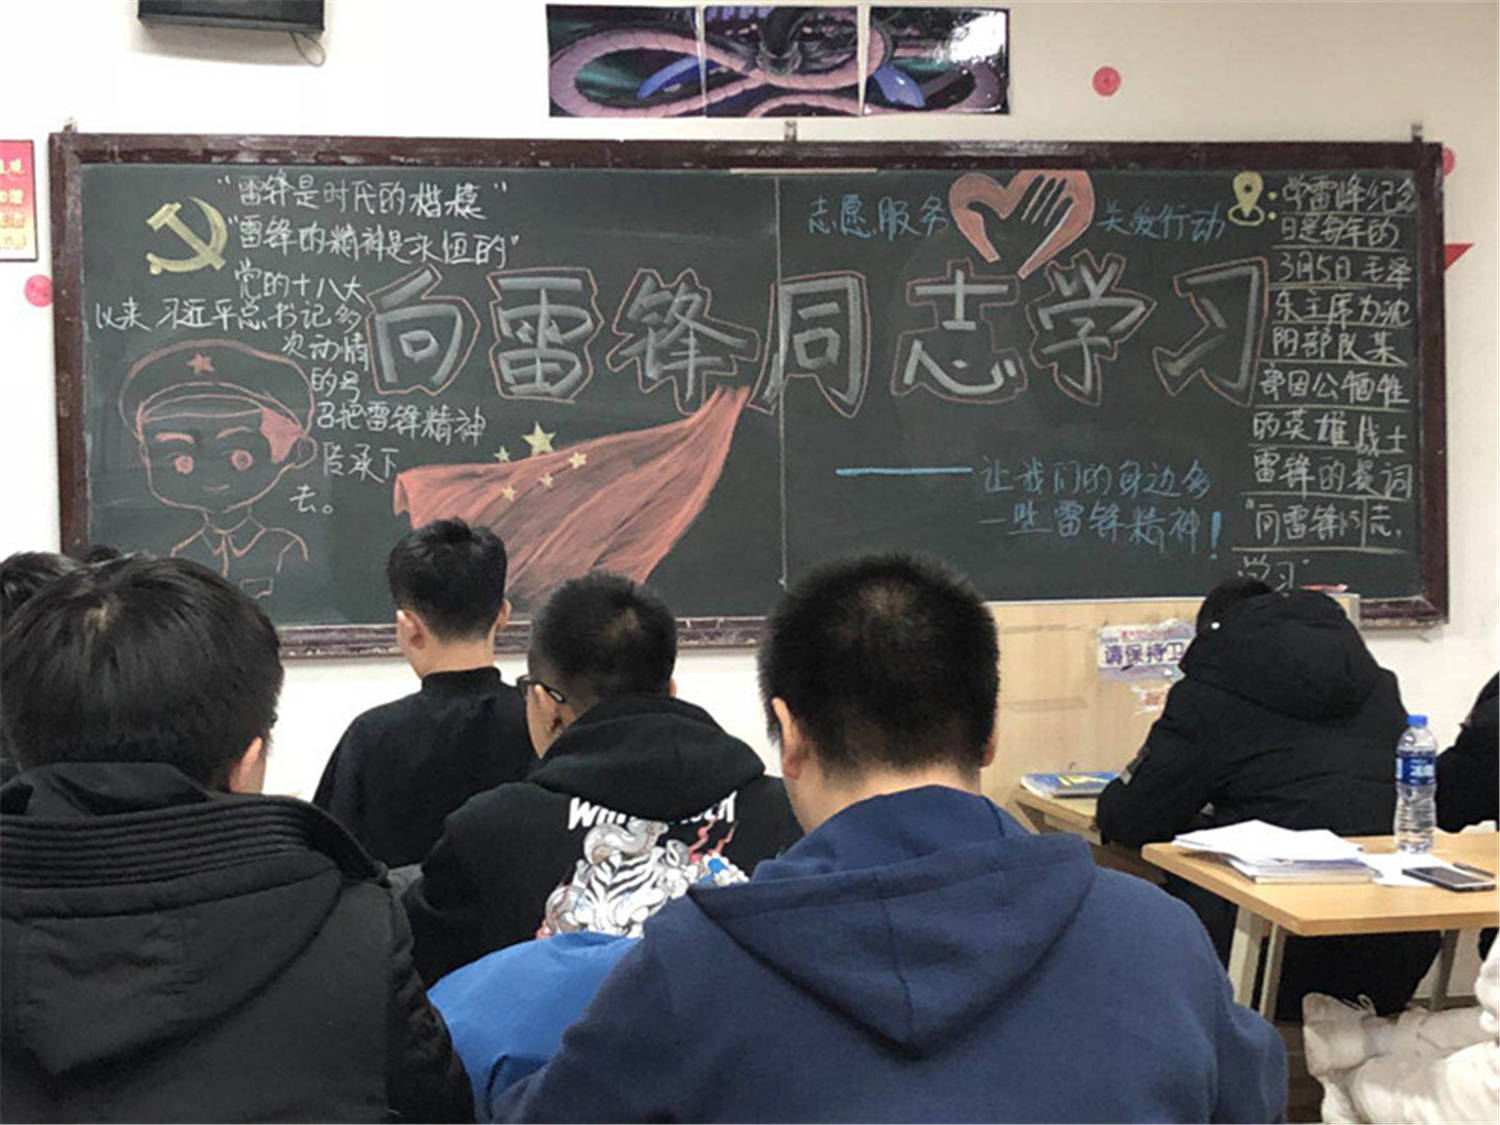 "雷锋是时代的楷模"
"雷锋的精神是永恒的"
党的十八大
以来 习近平总书记多
次动情
的号
召把雷锋精神
传承下
去。
向雷锋同志学习
志愿服务
关爱行动
让我们的身边多
一些雷锋精神！
学雷峰纪念
日是每年的
3月5日 毛泽
东主席为沈
阳部队某
部因公牺牲
的英雄战士
雷锋的题词
"向雷锋同志
学习"
请保持卫